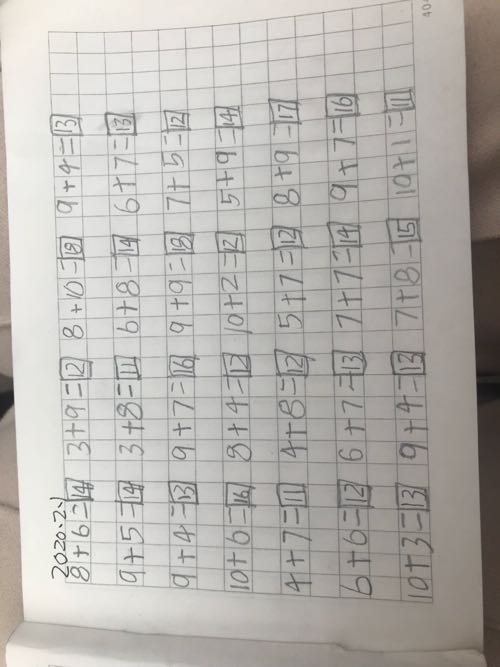 2020.2.1
8+6=14 3+9=12 8+10=18 9+4=13
9+5=14 3+8=11 6+8=14 6+7=13
9+4=13 9+7=16 9+9=18 7+5=12
10+6=16 8+4=12 10+2=12 5+9=14
4+7=11 4+8=12 5+7=12 8+9=17
6+6=12 6+7=13 7+7=14 9+7=16
10+3=13 9+4=13 7+8=15 10+1=11